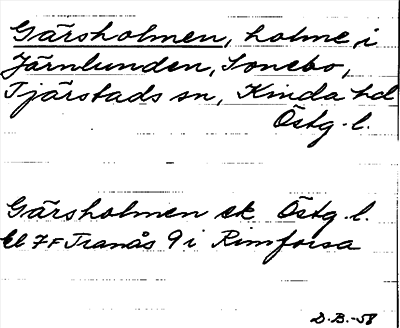 Gärsholmen, holme i
Järnlunden, Sonebo,
Tjärstads sn, Kinda hd
Östg. l.
Gärsholmen ek Östg. l.
bl 7F Tranås 9 i Rimforsa
D.B.-58